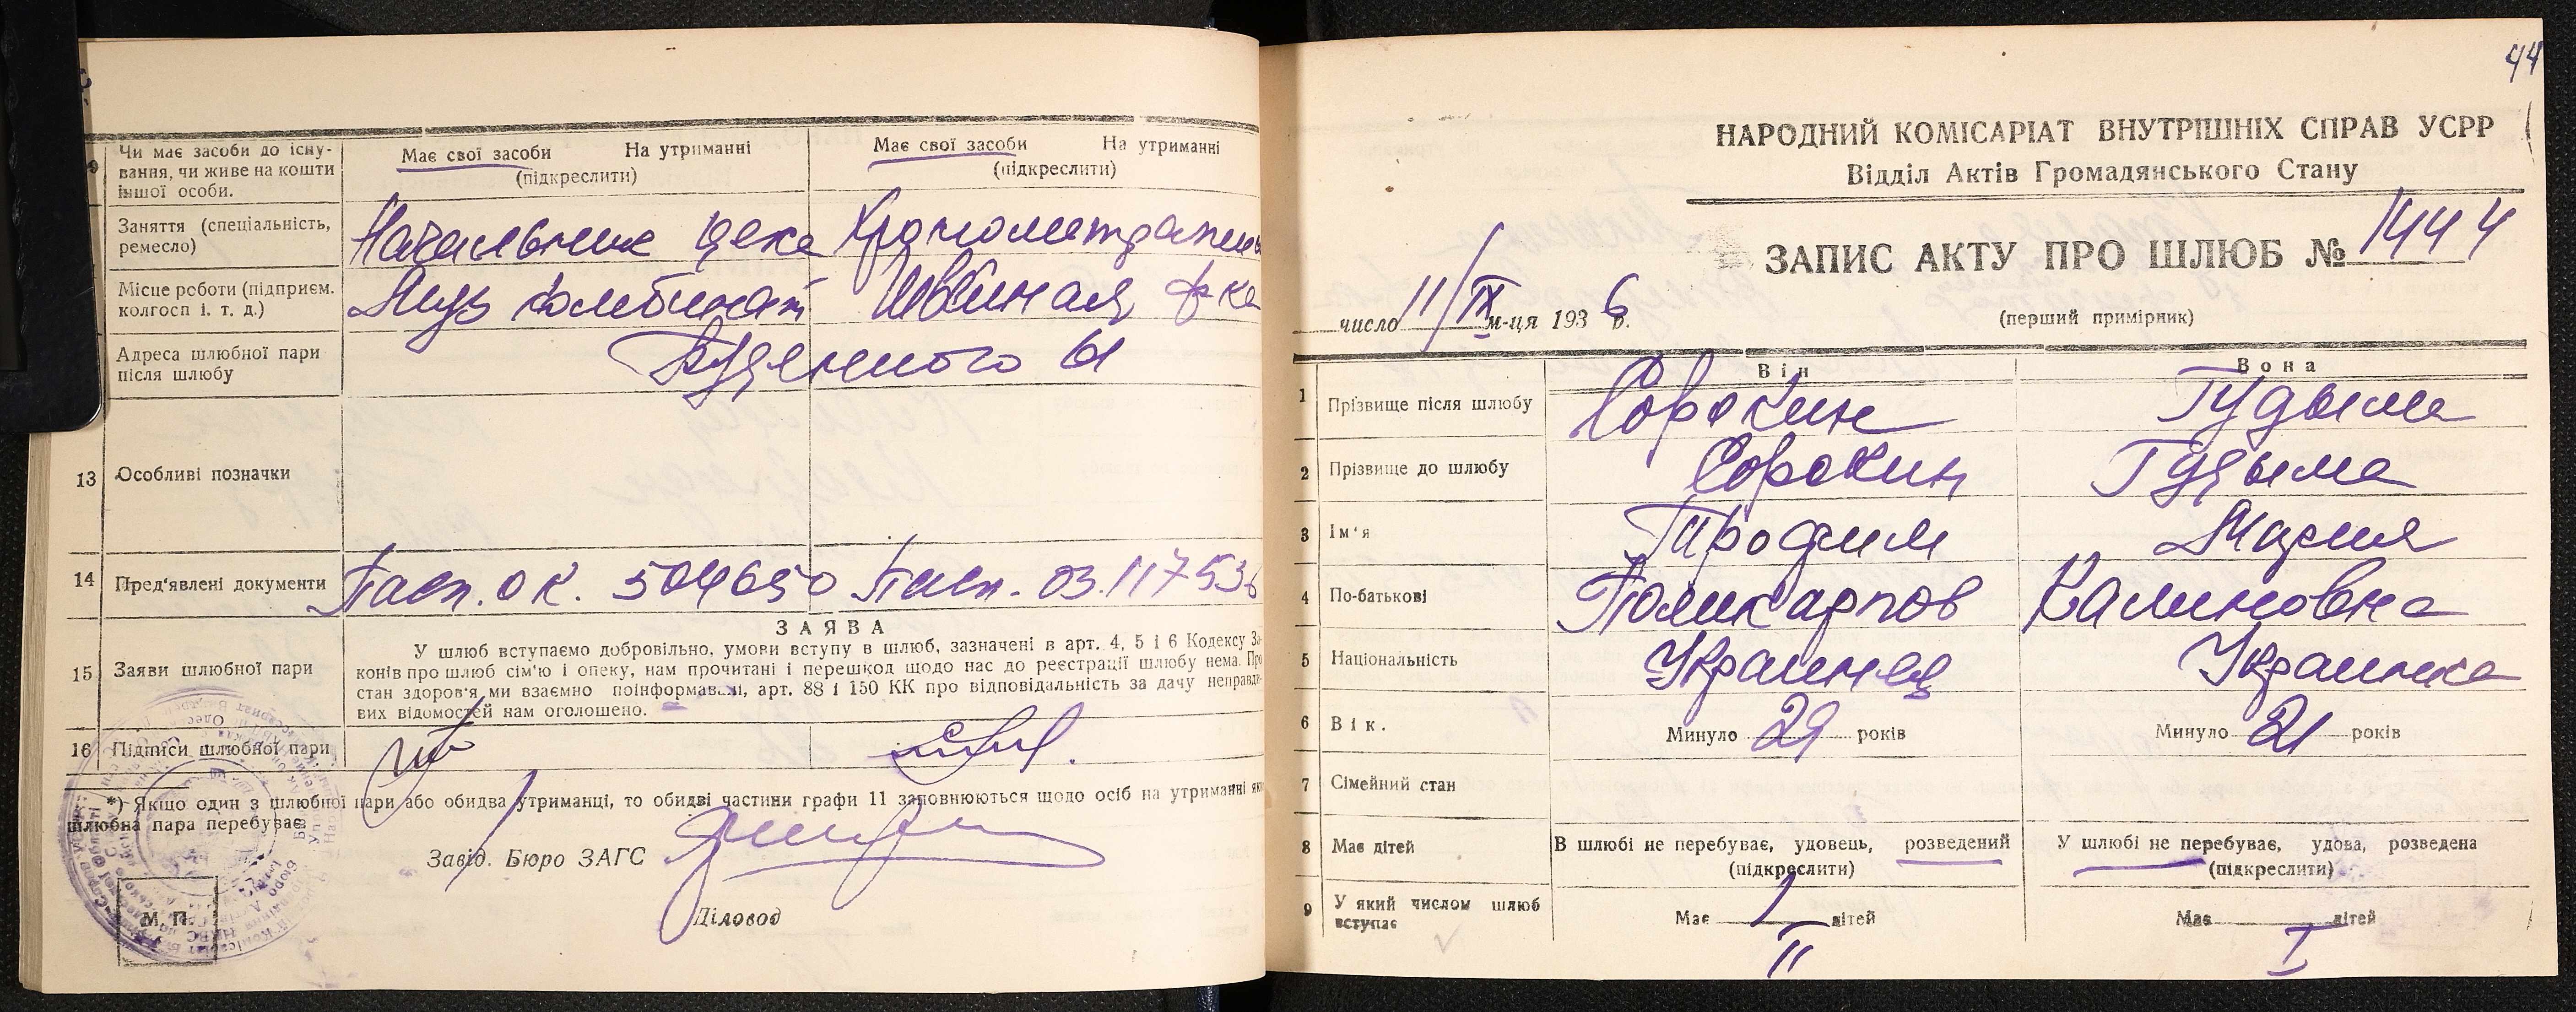 Чи має засоби до існу-
вання, чи живе на кошти
іншої особи.
Має свої засоби На утриманні
(підкреслити)
Має свої засоби На утриманні
(підкреслити)
Заняття (спеціальність,
ремесло)
Начальник цеха
Місце роботи (підприєм.
колгосп і. т. д.)
Муз комбинат
Швейная ф-ка
Адреса шлюбної пари
після шлюбу
Буденного 61
13 Особливі позначки
14 Пред'явлені документи
Пасп. ОК. 504650
Пасп. 03.117536
ЗАЯВА
15 Заяви шлюбної пари
У шлюб вступаємо добровільно, умови вступу в шлюб, зазначені в арт. 4, 5 і 6 Кодексу За-
конів про шлюб сім'ю і опеку, нам прочитані і перешкод щодо нас до реєстрації шлюбу нема. Про
стан здоров'я ми взаємно поінформавані, арт. 88 і 150 КК про відповідальність за дачу неправди-
вих відомостей нам оголошено.
16 Підписи шлюбної пари
*) Якщо один з шлюбної пари або обидва утриманці, то обидві частини графи 11 заповнюються щодо осіб на утриманні яких
шлюбна пара перебуває
Завід. Бюро ЗАГС
Діловод
М. П.
44
НАРОДНИЙ КОМІСАРІАТ ВНУТРІШНІХ СПРАВ УСРР
Відділ Актів Громадянського Стану
ЗАПИС АКТУ ПРО ШЛЮБ № 1444
число 11/IX м-ця 1936 р.
(перший примірник)
Він Вона
1 Прізвище після шлюбу Сорокин Гудыма
2 Прізвище до шлюбу Сорокин Гудыма
3 Ім'я Трофим Мария
4 По-батькові Поликарпов Калиновна
5 Національність Украинец Украинка
6 Вік. Минуло 29 років Минуло 21 років
7 Сімейний стан
8 Має дітей
В шлюбі не перебуває, удовець, розведений
(підкреслити)
У шлюбі не перебуває, удова, розведена
(підкреслити)
9 У який числом шлюб
вступає
Має 1 дітей
Має дітей
II I